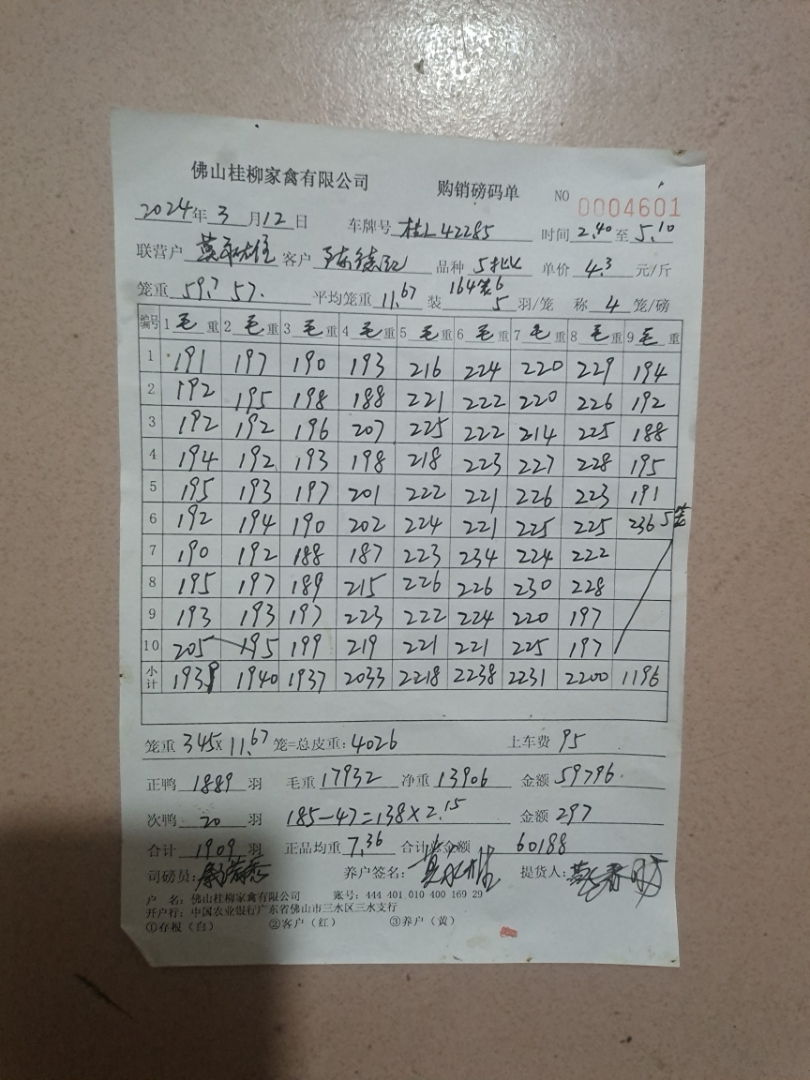 佛山桂柳家禽有限公司 购销磅码单 NO 0004601
2024年3月12日 车牌号 桂L42285 时间2.40至5.10
联营户 客户 品种 5批 单价 4.3 元/斤
笼重 59.7 57. 平均笼重11.67 装 164装6 5 羽/笼 称 4 笼/磅
编号 1毛重 2毛重 3毛重 4毛重 5毛重 6毛重 7毛重 8毛重 9毛重
1 191 197 190 193 216 224 220 229 194
2 192 195 198 188 221 222 220 226 192
3 192 192 196 207 225 222 214 225 188
4 194 192 193 198 218 223 227 228 195
5 195 193 197 201 222 221 226 223 191
6 192 194 190 202 224 221 225 225 236 5笼
7 190 192 188 187 223 234 224 222
8 195 197 189 215 226 226 230 228
9 193 193 197 223 222 224 220 197
10 205 195 199 219 221 221 225 197
小计 1939 1940 1937 2033 2218 2238 2231 2200 1196
笼重 345×11.67 笼=总皮重:4026 上车费 95
正鸭 1889 羽 毛重 17932 净重 13906 金额 59796
次鸭 20 羽 185-47=138×2.15 金额 297
合计 1909 羽 正品均重 7.36 合计总金额 60188
司磅员: 养户签名: 提货人:
户 名:佛山桂柳家禽有限公司 账号:444 401 010 400 169 29
开户行:中国农业银行广东省佛山市三水区三水支行
①存根(白) ②客户(红) ③养户(黄)